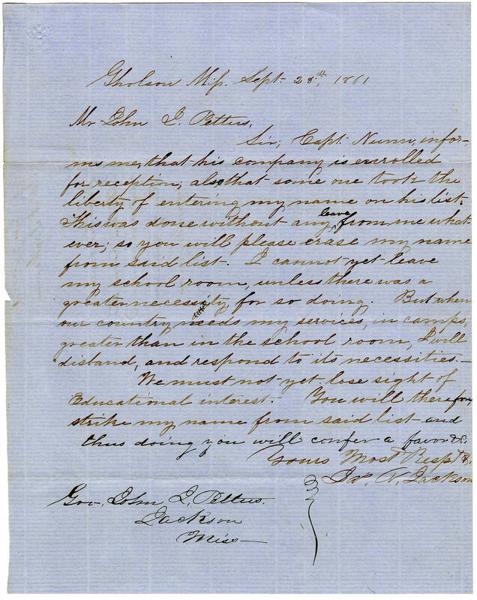 Gholson Miss. Sept. 28th, 1861
Mr John J. Pettus,
Sir, Capt. Nunn, infor-
ms me, that his company is enrolled
for reception, also that some one took the
liberty of entering my name on his list.
This was done without any leave, from me what-
ever; so you will please erase my name
from said list. I cannot yet leave
my school room, unless there was a
greater necessity for so doing. But when
our country needs my services, in camps,
greater than in the school room, I will
disband, and respond to its necessities.—
We must not yet lose sight of
Educational interest. You will therefore,
strike my name from said list—and
thus doing you will confer a favor &c.
Yours Most Respt. &c,
Jackson
Gov. John J. Pettus.
Jackson
Miss—